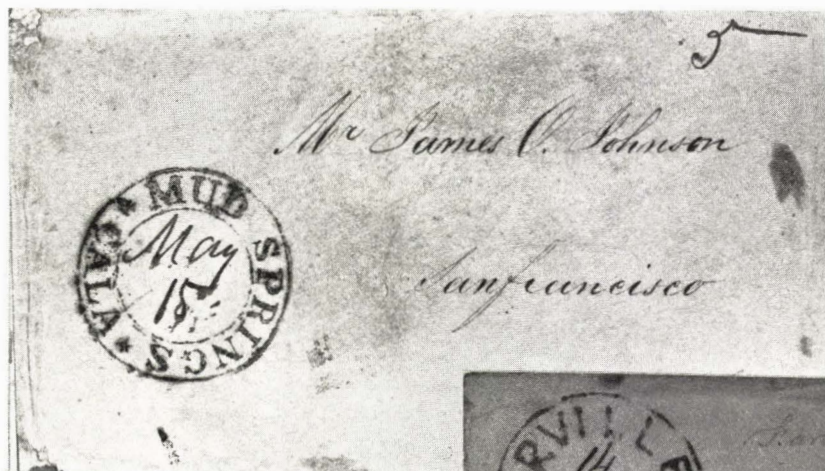 5
Mr James O. Johnson
Sanfrancisco
MUD SPRINGS CAL
May
15
RVILLE
14